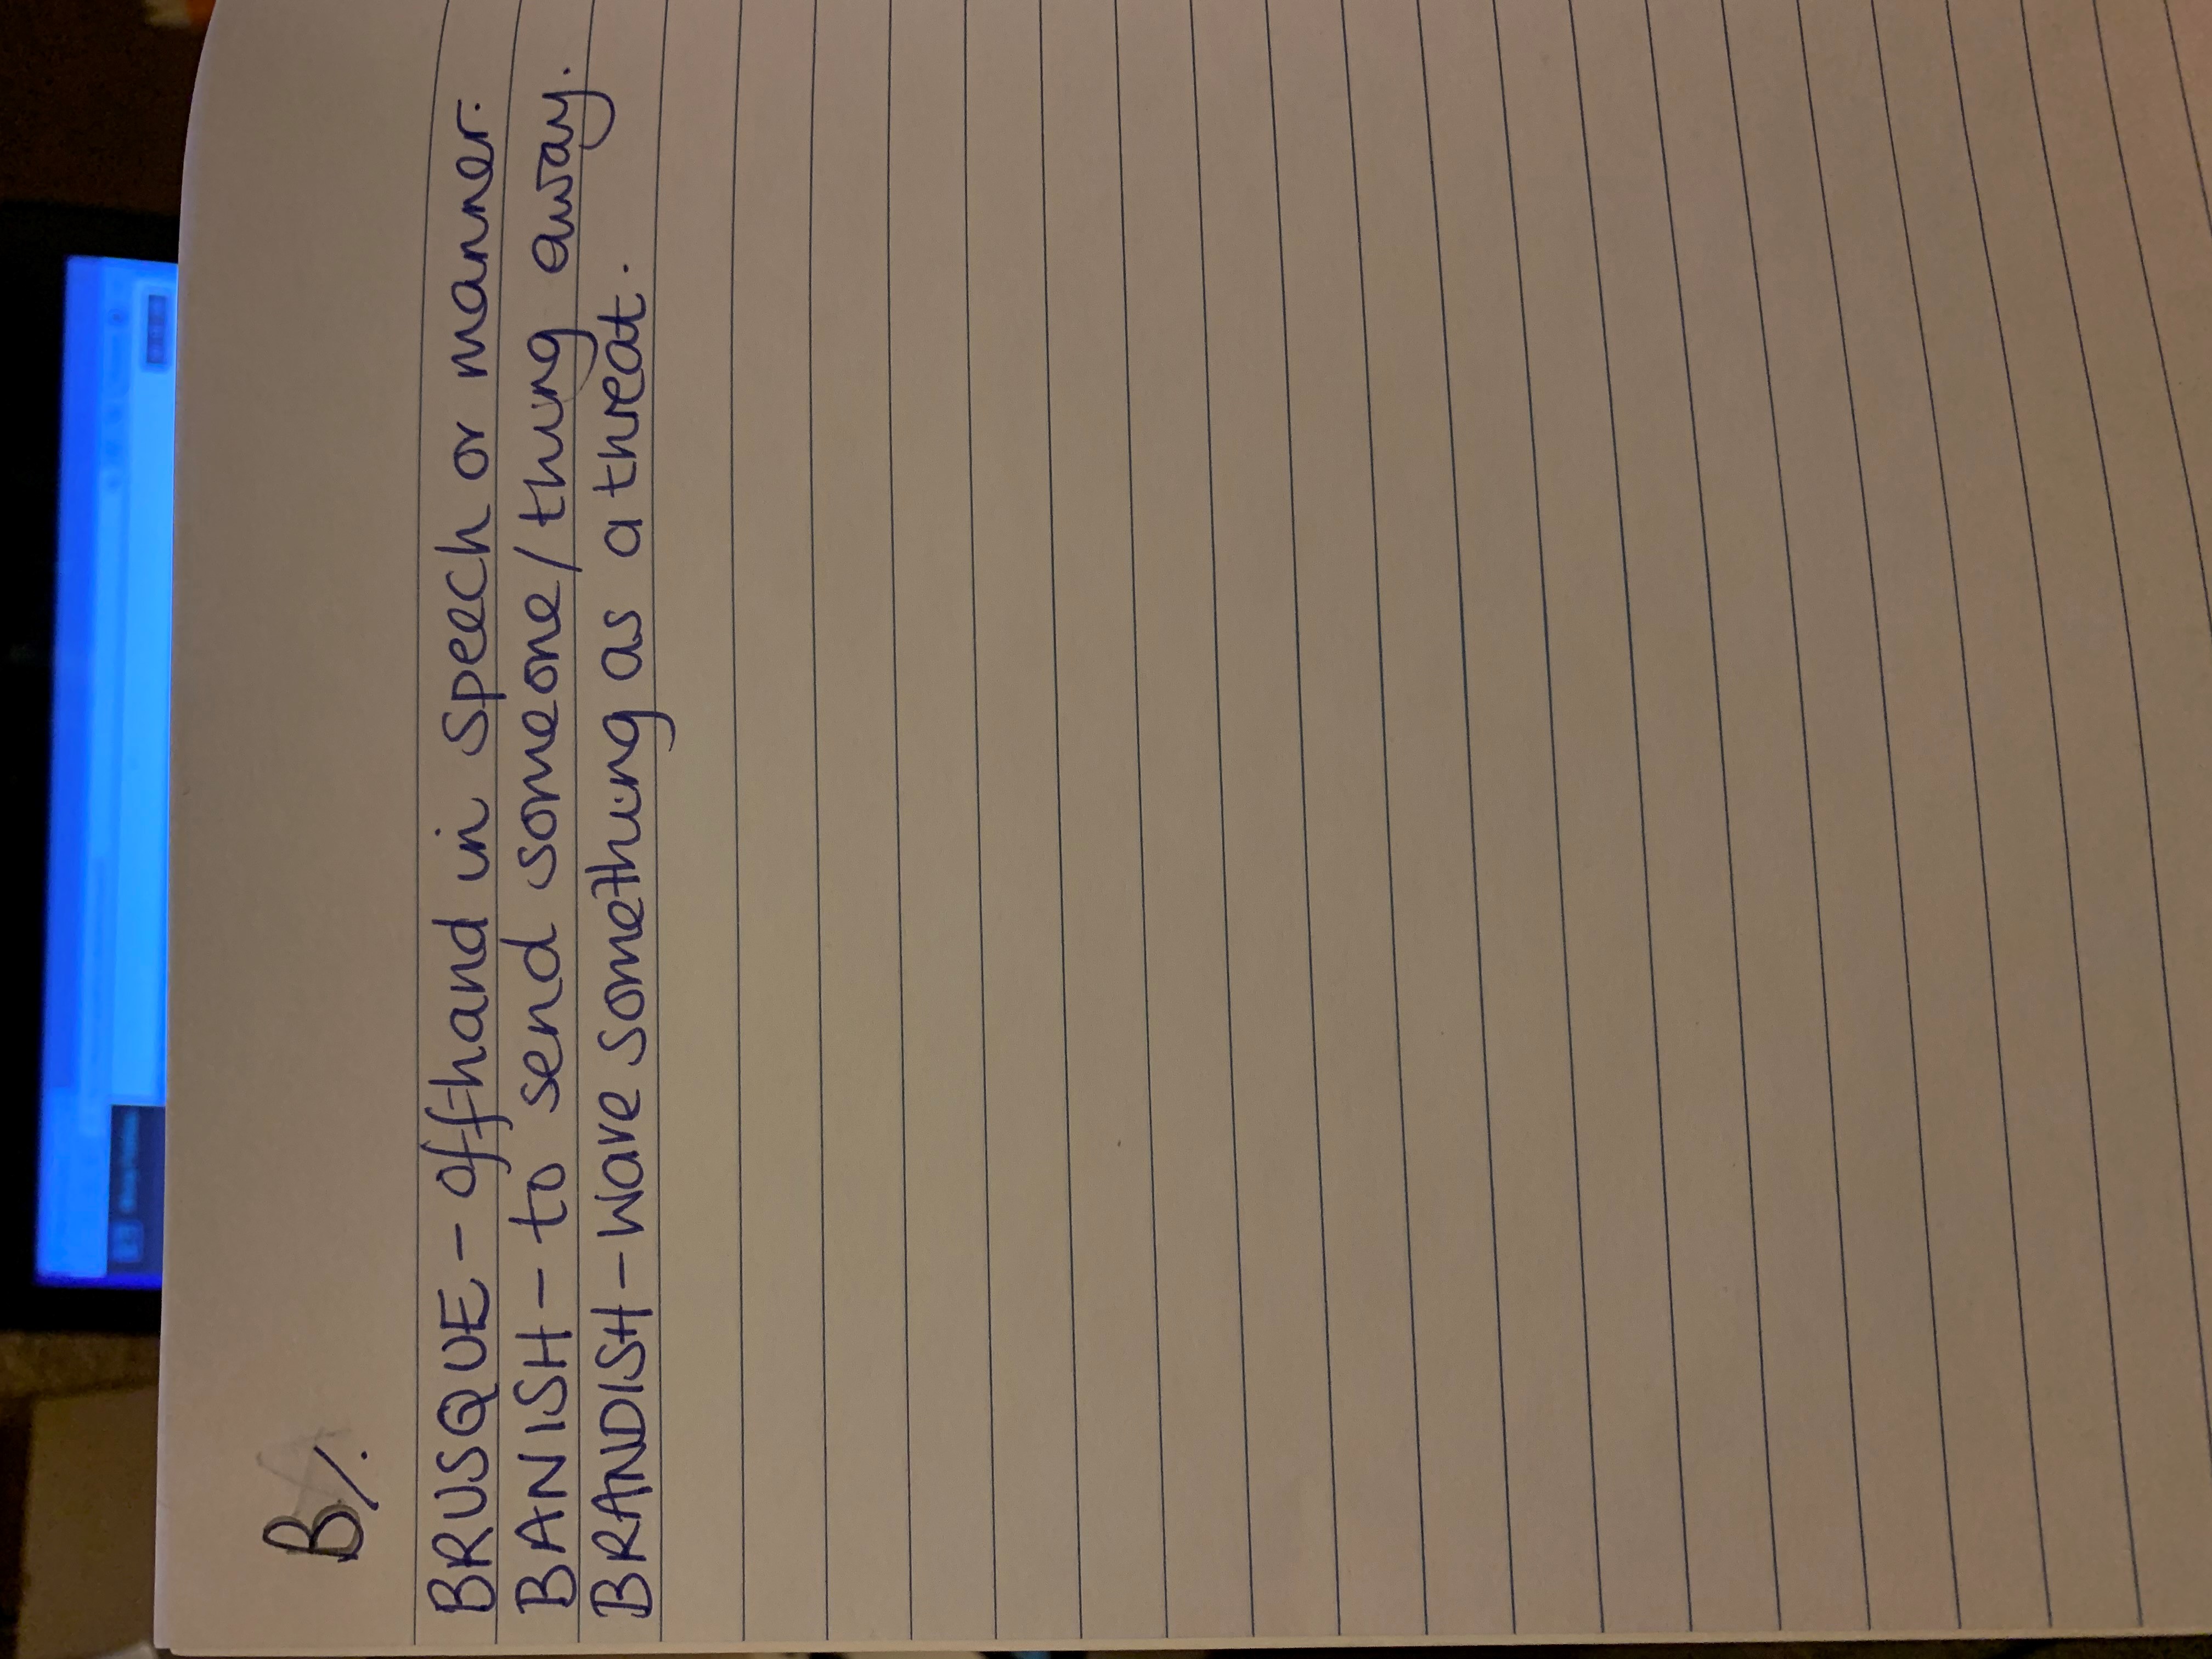 B/.
BRUSQUE - offhand in speech or manner.
BANISH - to send someone/thing away.
BRANDISH - wave something as a threat.